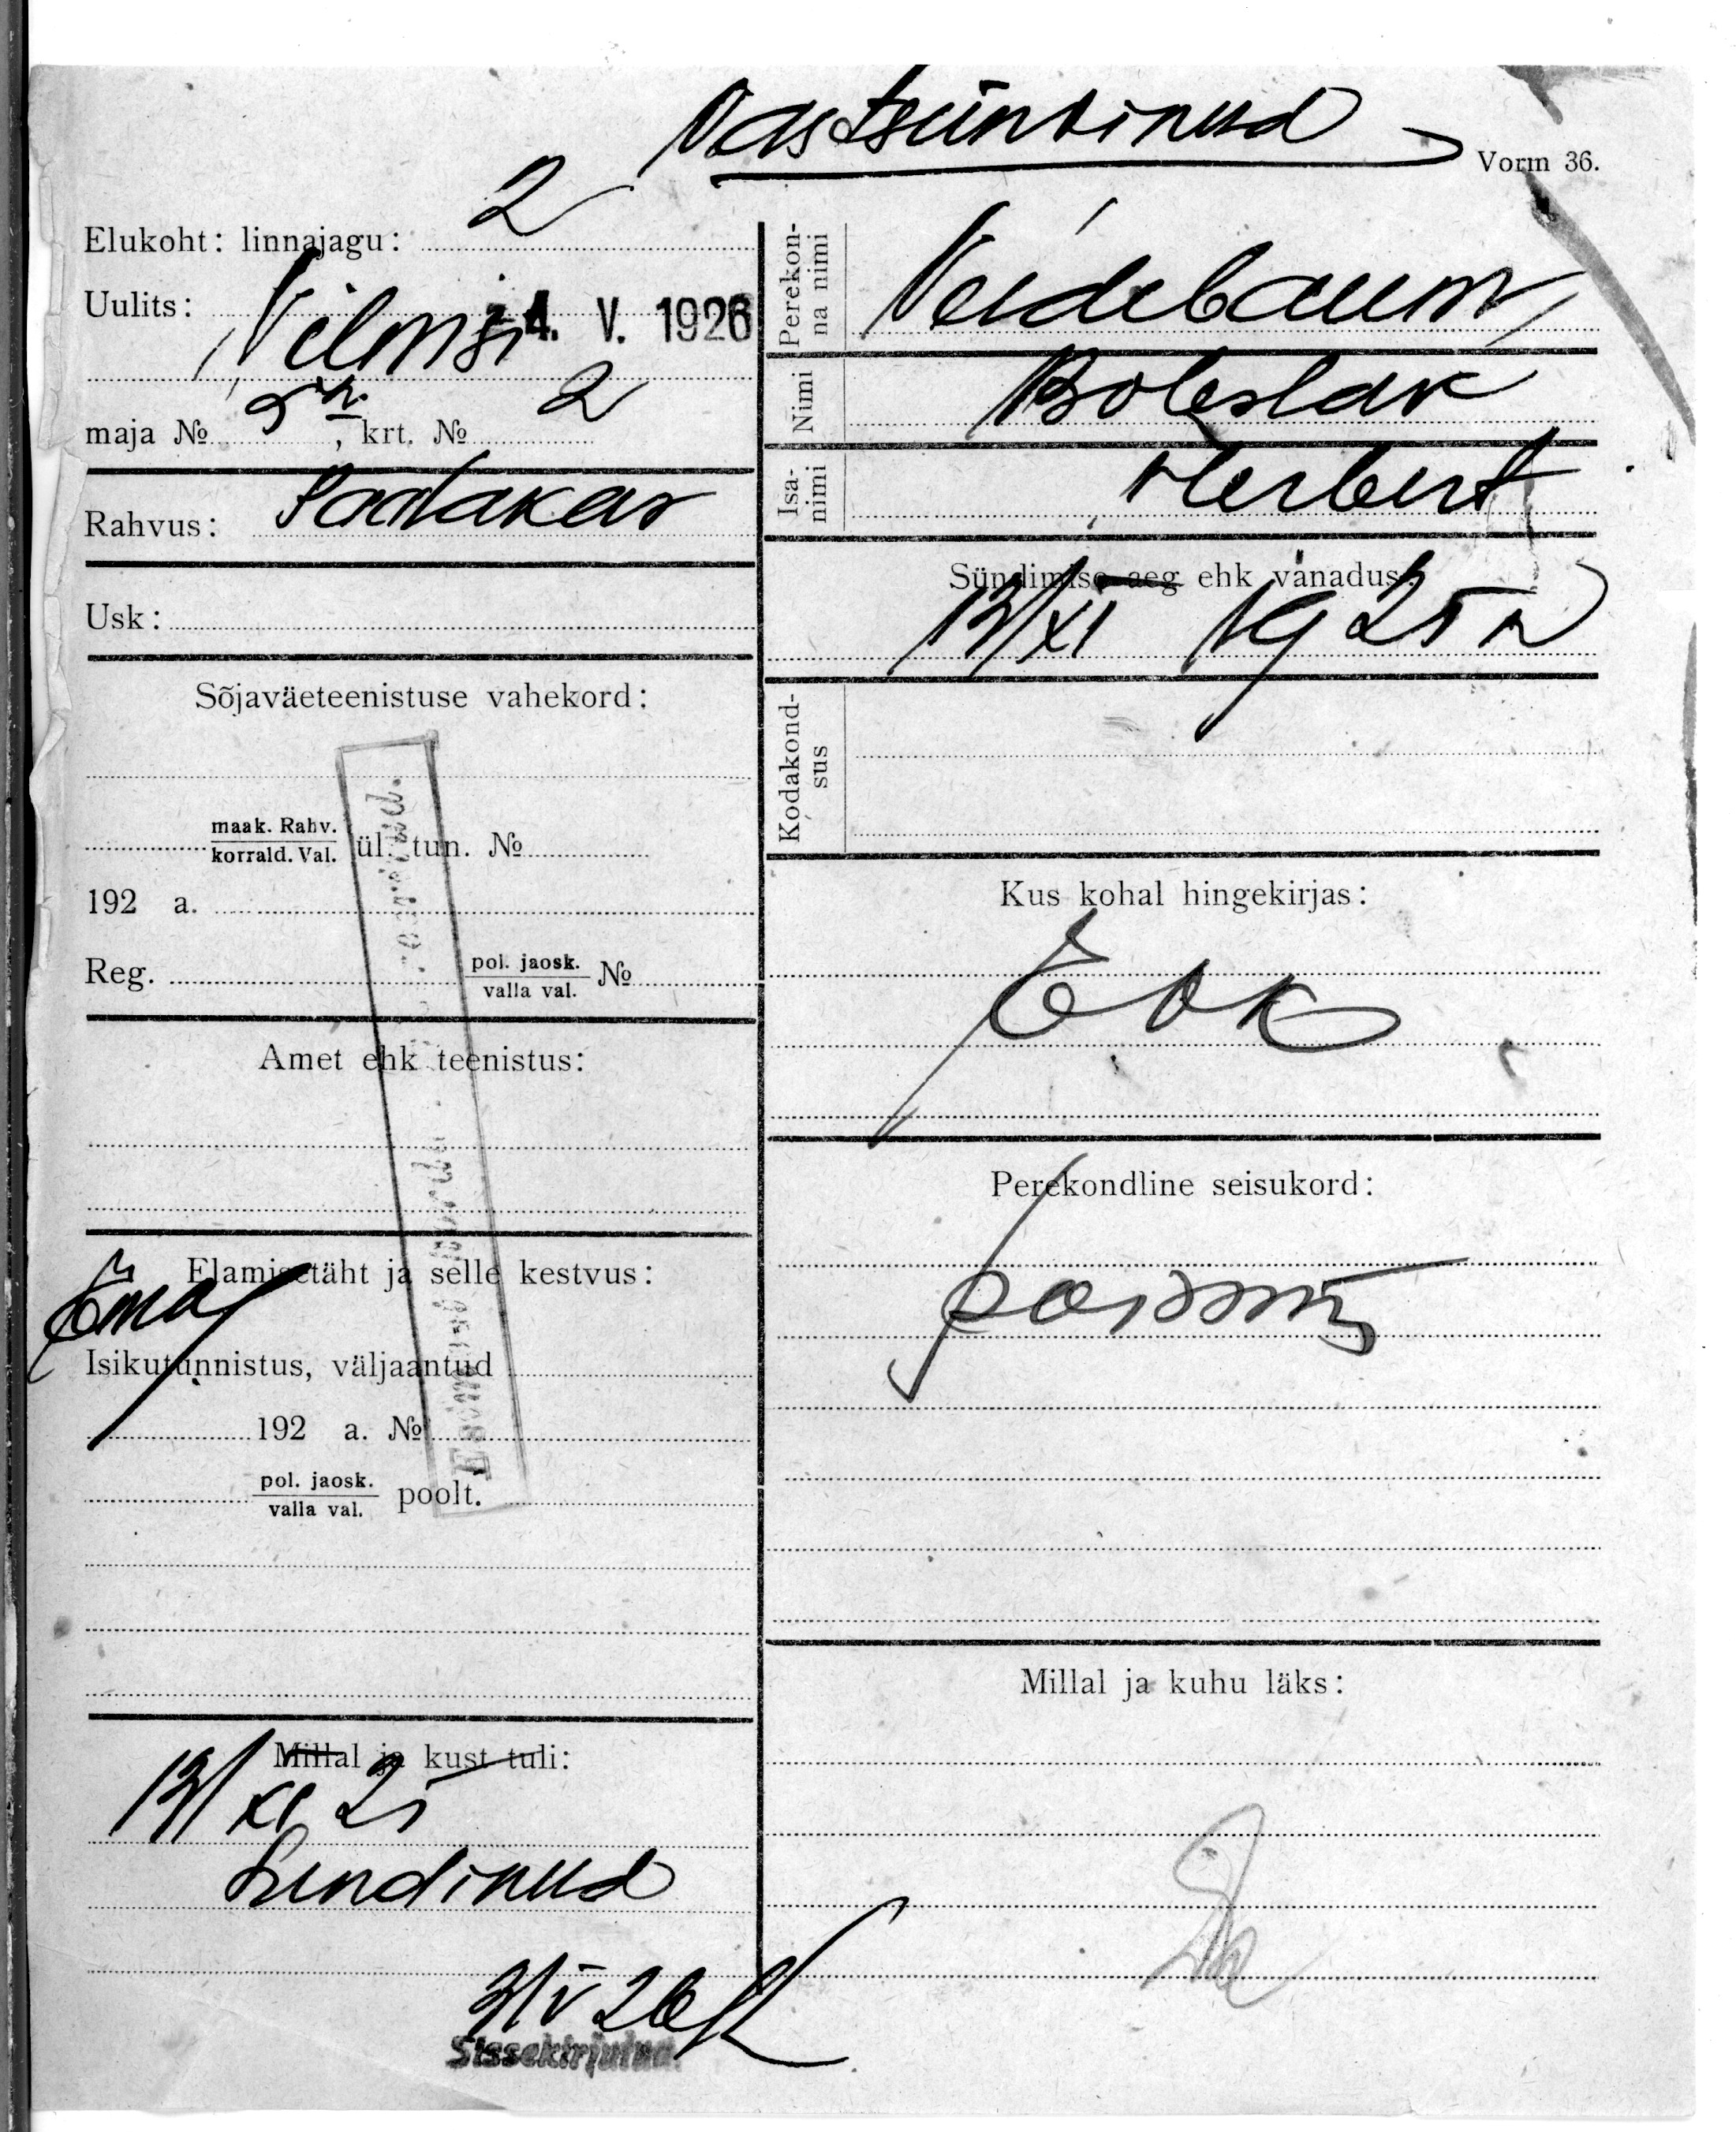 Vastsündinud
Vorm 36.
Elukoht: linnajagu: 2
Uulits: Vilmsi
-4. V. 1926
maja № 5a, krt. № 2
Rahvus: Poolakas
Usk:
Sõjaväeteenistuse vahekord:
maak. Rahv.
korrald. Val. ül. tun. №
192 a.
Reg. pol. jaosk.
valla val. №
Amet ehk teenistus:
Elamisetäht ja selle kestvus:
Ema
Isikutunnistus, väljaantud
192 a. №
pol. jaosk.
valla val. poolt.
Millal ja kust tuli:
13/XI 25
Sündinud
3/V 26
Sissekirjutud.
Perekon-
na nimi
Veidebaum
Nimi
Boleslav
Isa-
nimi
Herbert
Sündimise aeg ehk vanadus:
13/XI 1925 a
Kodakond-
sus
Kus kohal hingekirjas:
Perekondline seisukord:
Millal ja kuhu läks: